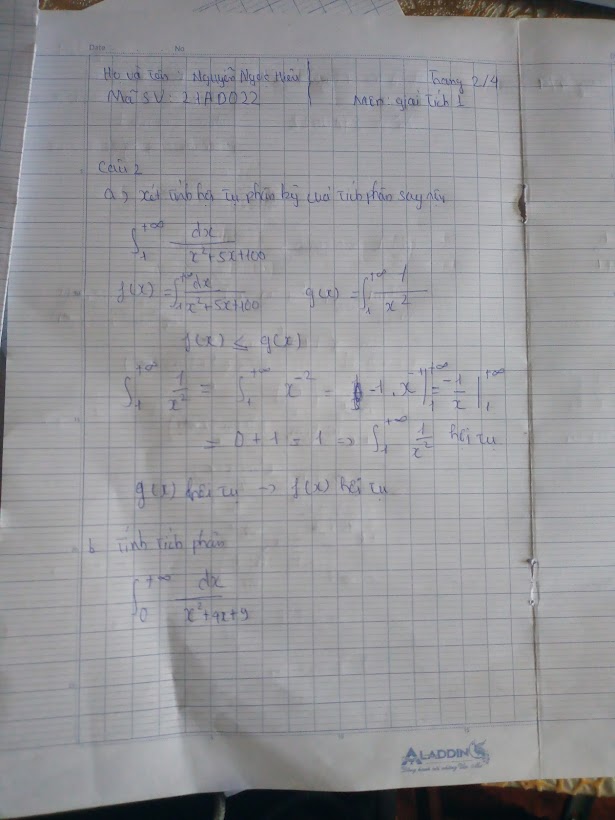 Date No
Họ và tên : Nguyễn Ngọc Trang 2/4
Mã SV : 21AD022 Môn: giải tích 1
Câu 2
a, xét tính hội tụ phân kỳ của tích phân sau
∫₁^{+∞} dx/(x²+5x+100)
f(x) = ∫₁^{+∞} dx/(x²+5x+100) g(x) = ∫₁^{+∞} 1/x²
f(x) ≤ g(x)
∫₁^{+∞} 1/x² = ∫₁^{+∞} x⁻² = -1 . x⁻¹ |₁^{+∞} = -1/x |₁^{+∞}
= 0 + 1 = 1 => ∫₁^{+∞} 1/x² hội tụ
g(x) hội tụ -> f(x) hội tụ
b Tính tích phân
∫₀^{+∞} dx/(x²+4x+9)
ALADDIN